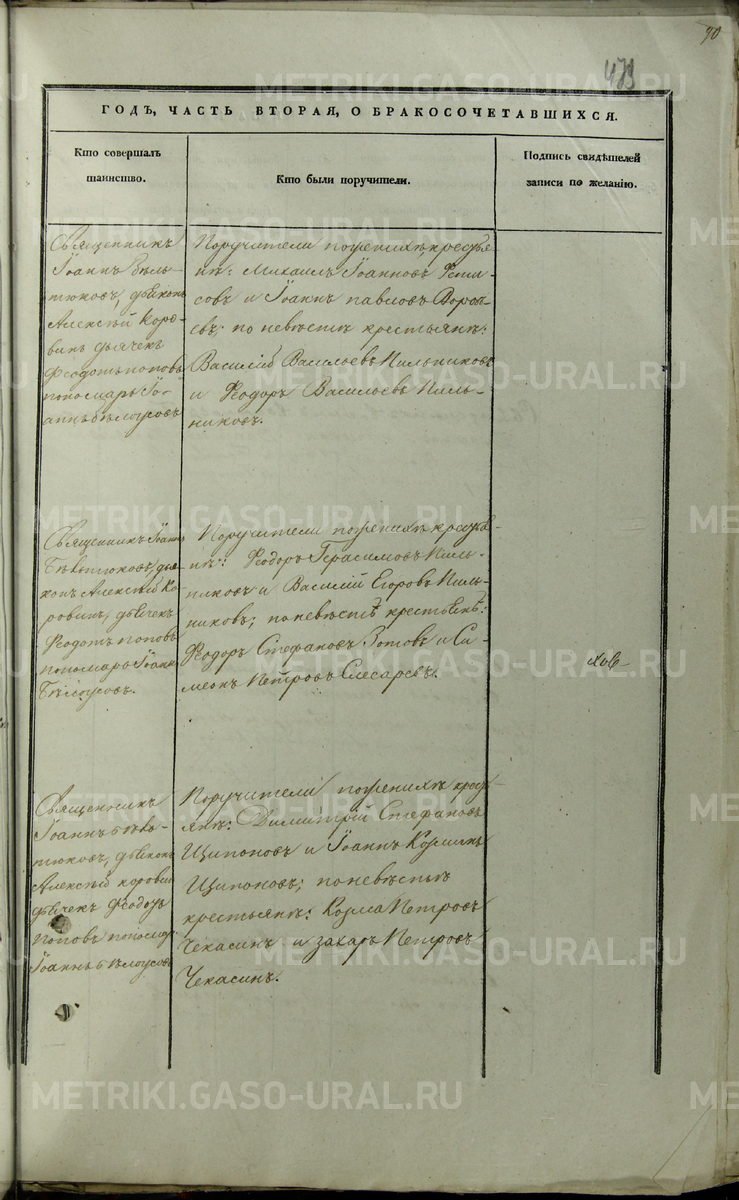 90
479
ГОДЪ, ЧАСТЬ ВТОРАЯ, О БРАКОСОЧЕТАВШИХСЯ.
Кто совершалъ
таинство.
Кто были поручители.
Подпись свидѣтелей
записи по желанію.
Священникъ
Іоаннъ
тюковъ, діаконъ
Алексѣй Коро-
винъ дьячекъ
Феодотъ поповъ
пономарь Іо-
аннъ бѣлоусовъ
Поручители по женихѣ, крестья
нѣ: Михаилъ Іоанновъ
совъ и Іоаннъ павловъ
евъ; по невѣстѣ крестьянѣ:
Василій Васильевъ Пильниковъ
и Феодоръ Васильевъ Пиль-
никовъ.
Священникъ Іоаннъ
діа
конъ Алексѣй Ко
ровинъ, дьячекъ
Феодотъ поповъ
пономарь Іоаннъ
Бѣлоусовъ.
Поручители по женихѣ крестья
нѣ: Феодоръ Герасимовъ Пиль-
никовъ и Василій Егоровъ Пиль-
никовъ; по невѣстѣ крестьянѣ:
Феодоръ Стефановъ Зотовъ и Си-
меонъ Петровъ Слесаревъ.
Священникъ
Іоаннъ
тюковъ, діаконъ
Алексѣй коровин
дьячекъ Феодотъ
Поповъ пономар
Іоаннъ бѣлоусовъ
Поручители по женихѣ крест
янѣ: Димитрій Стефановъ
Щипоновъ и Іоаннъ Козминъ
Щипоновъ; по невѣстѣ
крестьянѣ: Козма Петровъ
Чекасинъ и захаръ Петровъ
Чекасинъ.
METRIKI.GASO-URAL.RU